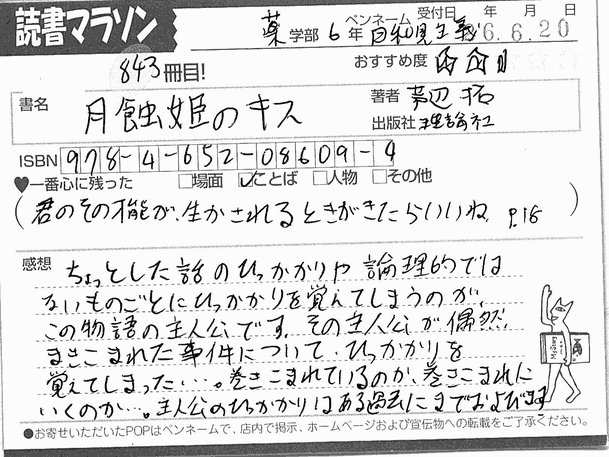 読書マラソン
薬学部 6年 ペンネーム 日和見主義 受付日 年 月 日
6.6.20
843冊目!
おすすめ度 ☆☆
書名 月蝕姫のキス
著者 辺 拓
出版社 理論社
ISBN 978-4-652-08609-4
♥一番心に残った □場面 ☑ことば □人物 □その他
(君のその才能が、生かされるときがきたらいいね P.18)
感想 ちょっとした話のひっかかりや論理的では
ないものごとにひっかかりを覚えてしまうのが、
この物語の主人公です。その主人公が偶然、
まきこまれた事件について、ひっかかりを
覚えてしまった…。巻きこまれているのか、巻きこまれに
いくのか…。主人公のひっかかりはある過去にまでおよびます
●お寄せいただいたPOPはペンネームで、店内で掲示、ホームページおよび宣伝物への転載をご了承ください。